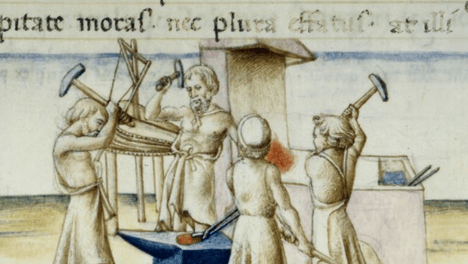 pitate moras· nec plura effatus· at illi